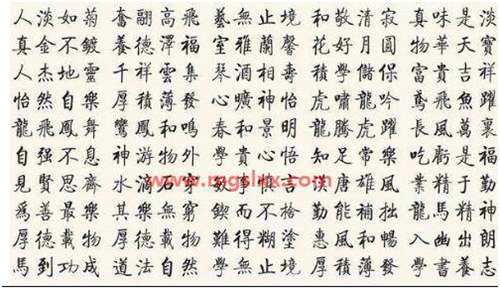 人淡如菊 奮翮高飛 藝無止境 和敬清寂 真味是淡
真金不鍍 養德澤福 室雅蘭馨 花好月圓 物華天寶
人杰地靈 千祥雲集 琴酒相壽 積學儲保 富貴吉祥
怡然自樂 厚積薄發 曠神怡 虎嘯龍吟 鳶飛魚躍
龍飛鳳舞 鸞鳳和鳴 春和景明 龍騰虎躍 長風萬裏
自强不息 神游物外 學貴心悟 知足常樂 吃虧是福
見賢思齊 水滴石穿 漢唐雄風 業精於勤
www.mgslxx.com
爲善最樂 其樂無窮 鍥而不捨 勤能補拙 龍馬精神
厚德載物 難得糊塗 惠風和暢 入幽出朗
馬到功成 道法自然 學無止境 厚積薄發 學書養志